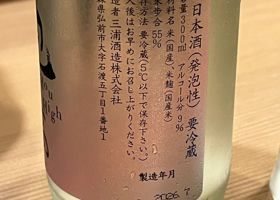 日本酒(発泡性)要冷蔵
量300ml アルコール分9%
材料名 米(国産)、米麹(国産米)
歩合 55%
存方法 要冷蔵(5℃以下で保存下さい)
入後はお早めにお召し上がりください。
造者 三浦酒造株式会社
森県弘前市大字石渡五丁目1番地1
製造年月
2026.7